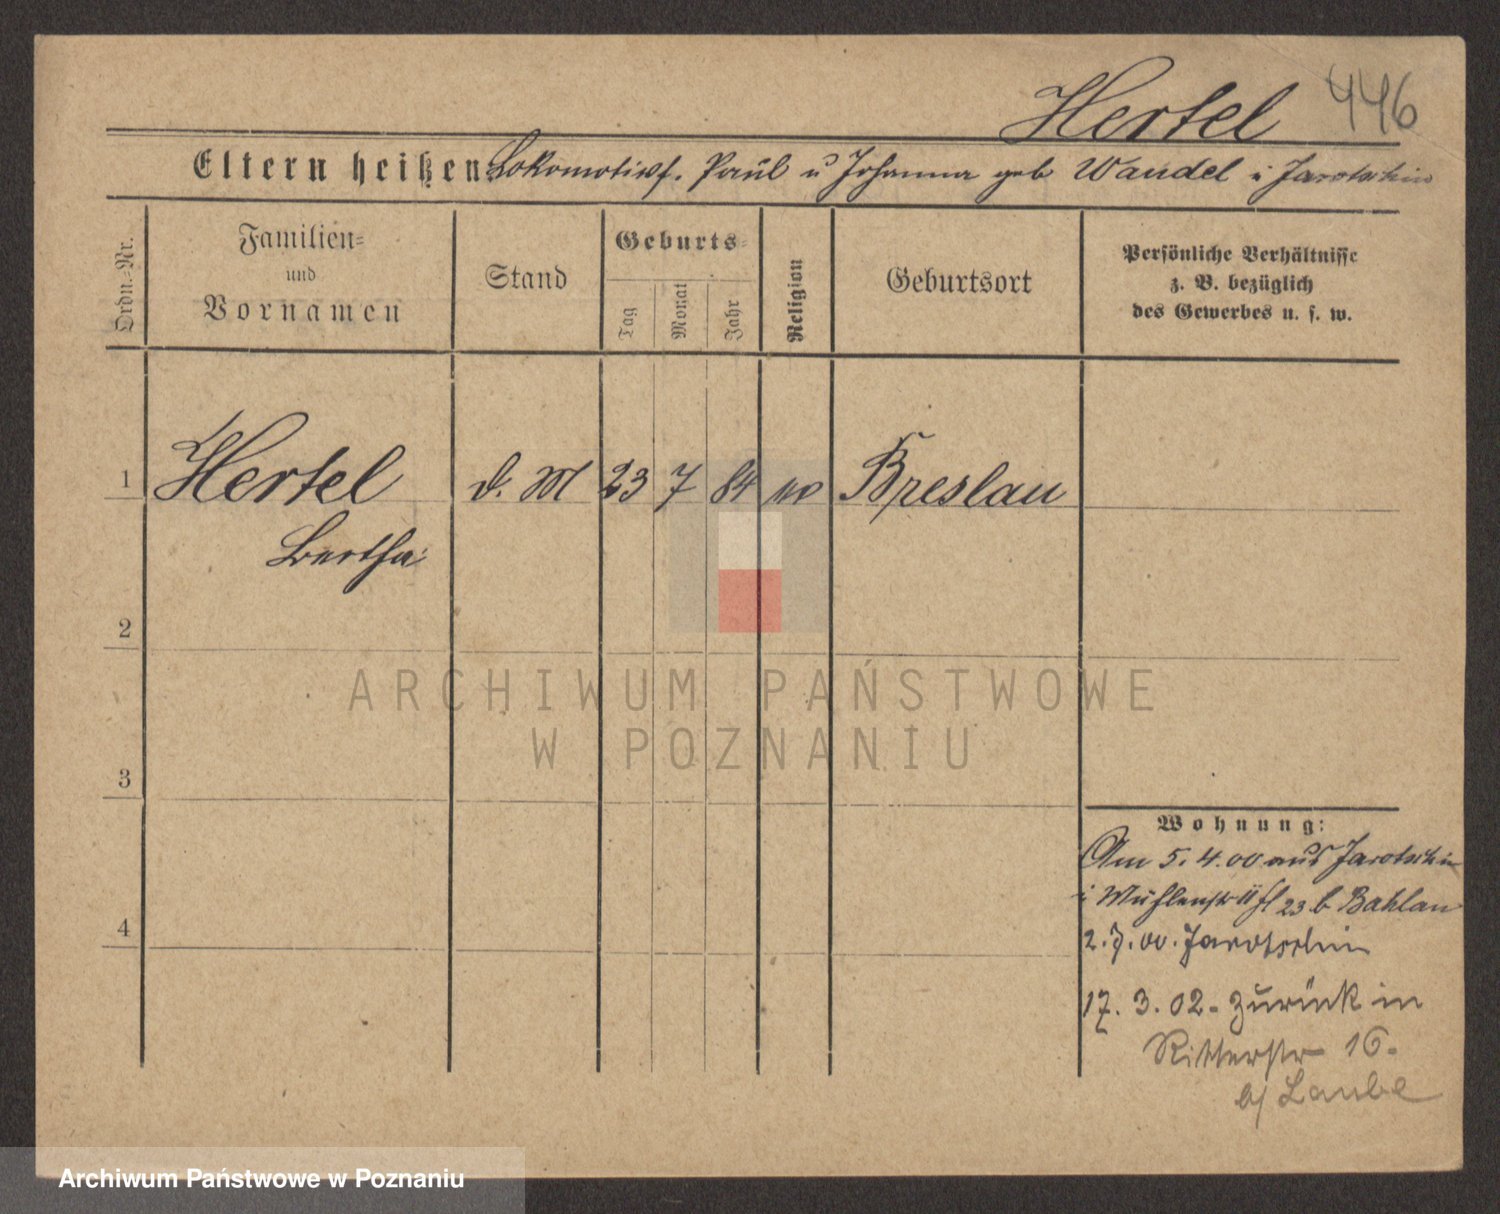 Hertel 446
Eltern heißen Lokomotivf. Paul u Johanna geb Wandel i Jarotschin
Ordn.-Nr.
Familien- und Vornamen
Stand
Geburts-
Tag
Monat
Jahr
Religion
Geburtsort
Persönliche Verhältnisse
z. B. bezüglich
des Gewerbes u. s. w.
1 Hertel d. M 23 7 84 Breslau
Bertha
2
3
4
Wohnung:
Am 5. 4. 00 aus Jarotschin
i Mühlenstr 11 23 b Bahlau
2. 7. 00. Jarotschin
17. 3. 02 - zurück in
Ritterstr 16.
b/ Laube
ARCHIWUM PAŃSTWOWE
W POZNANIU
Archiwum Państwowe w Poznaniu